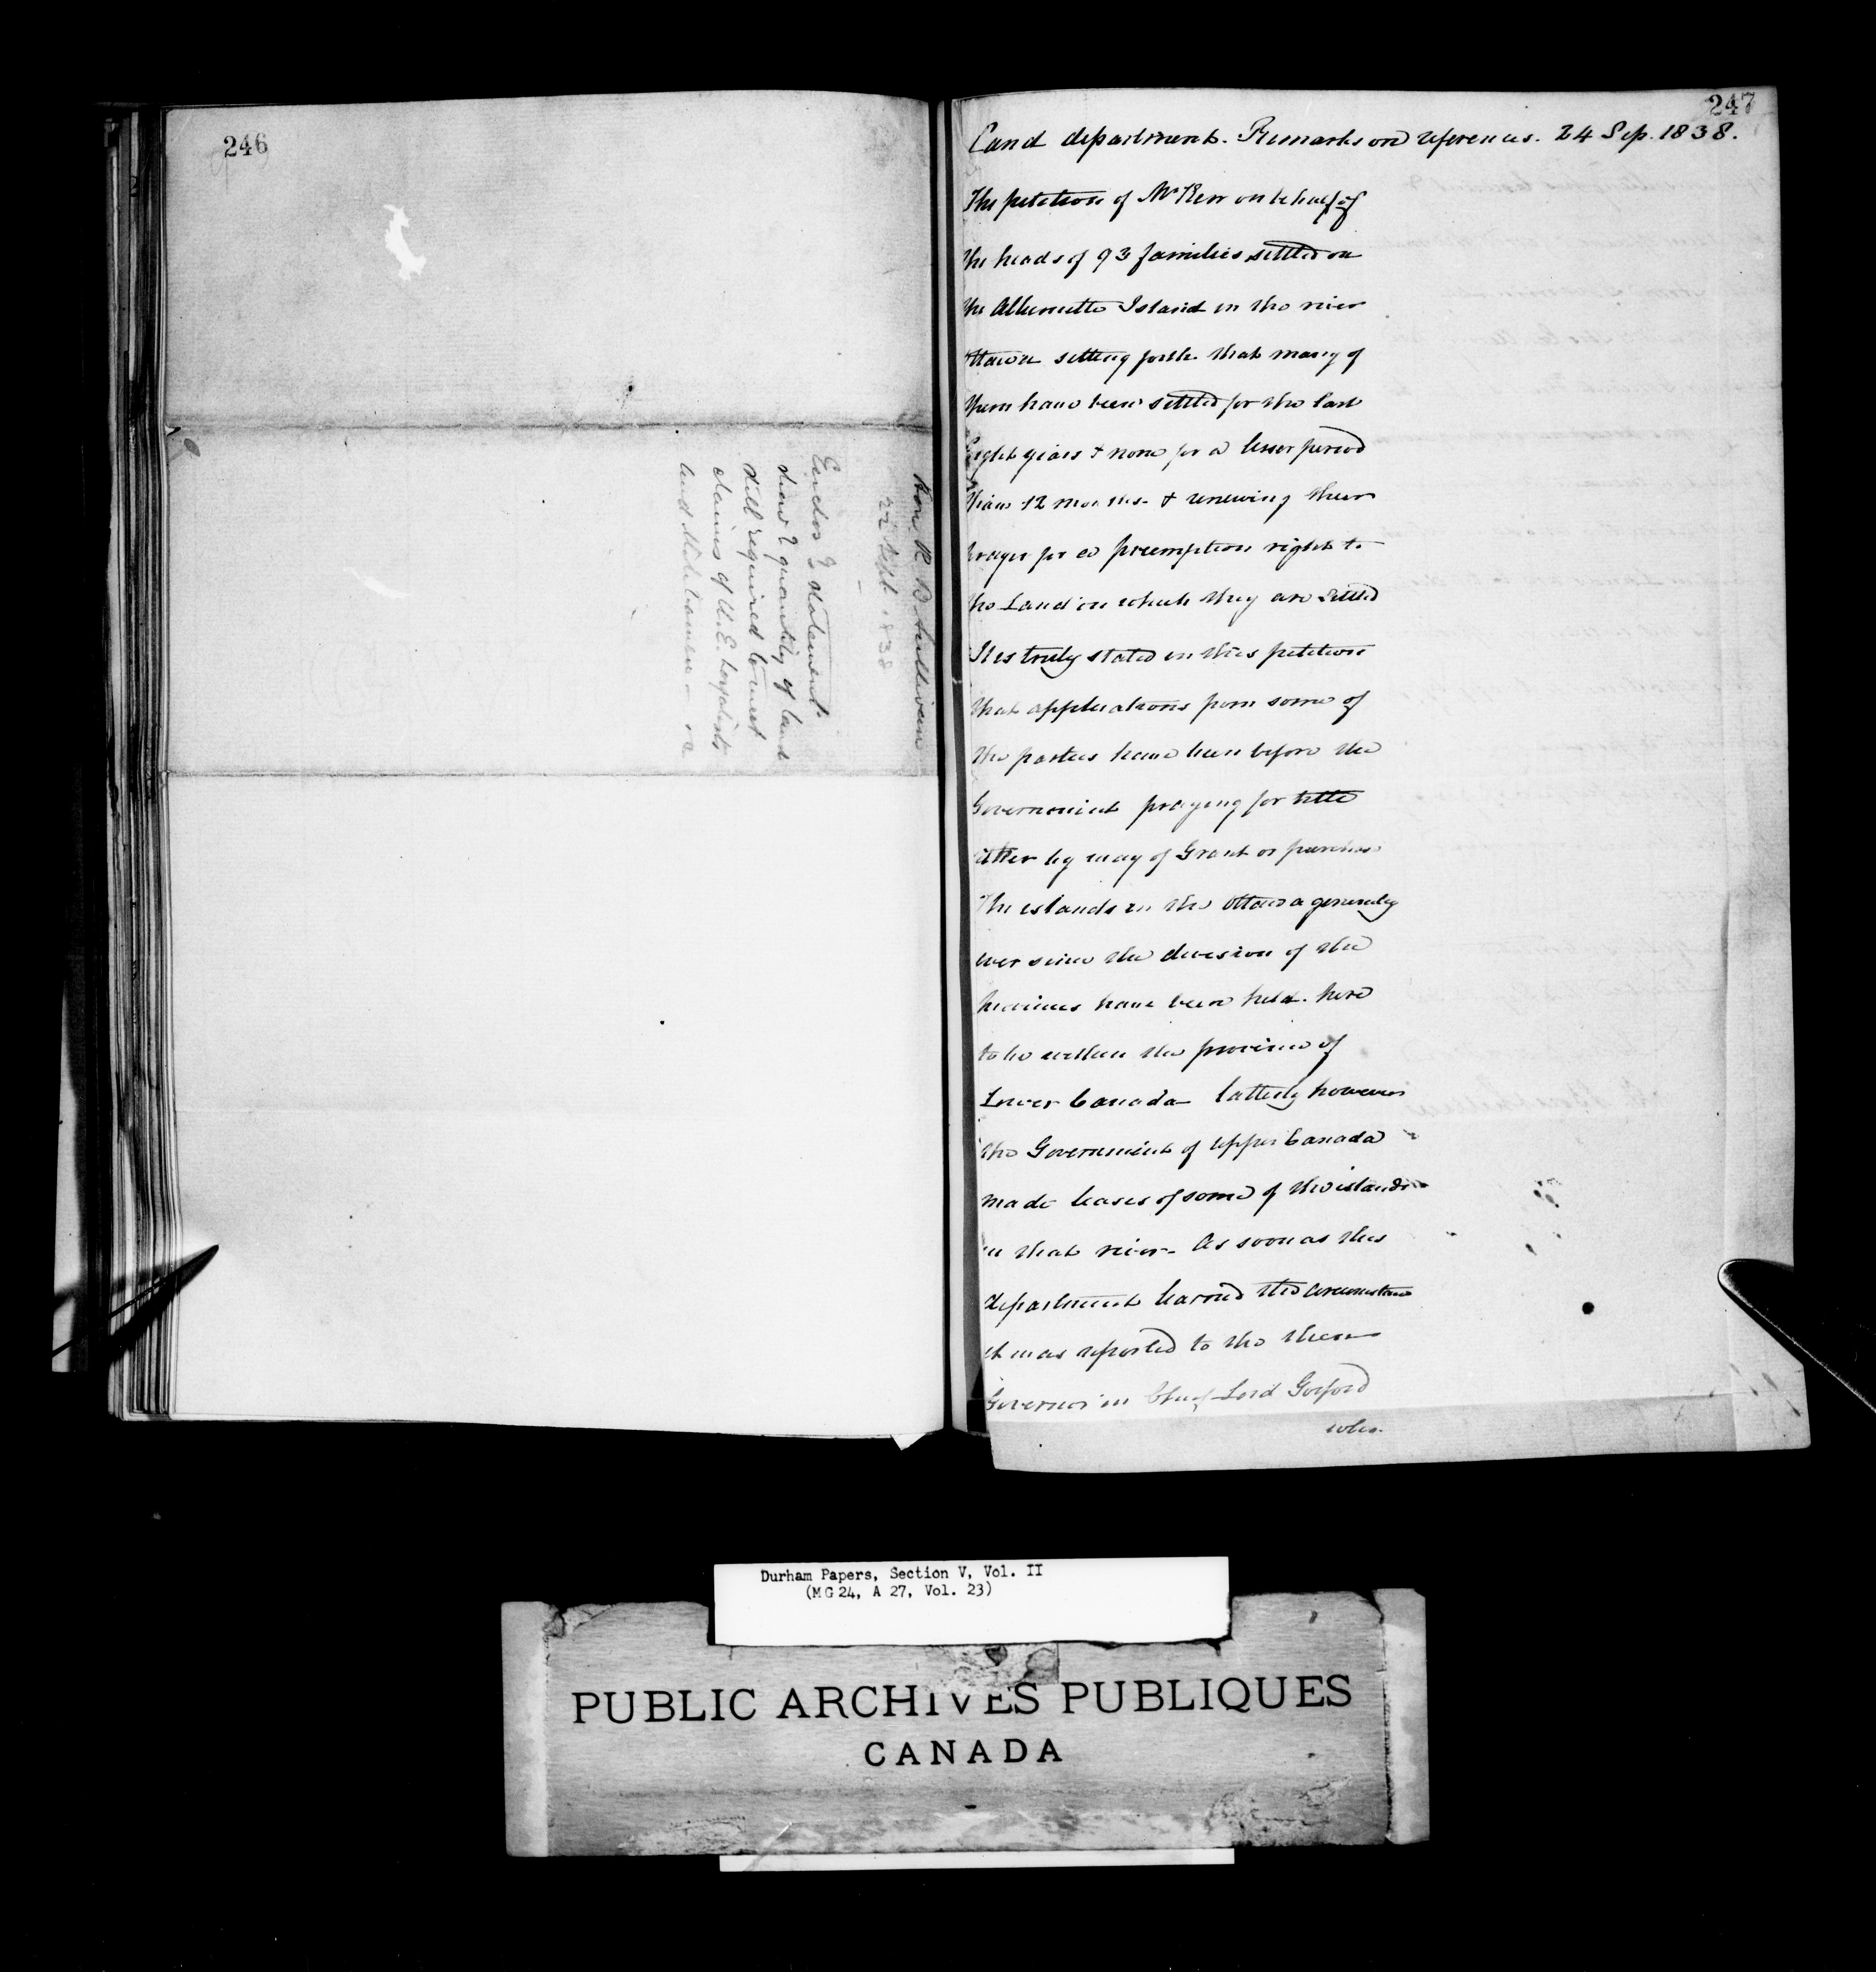 246
Hon R B Sullivan
22 Sept 1838
Enclos g statement
shew g quantity of land
still required to meet
claims of U.E. Loyalists
and Militiamen —
247
Land department. Remarks on references. 24 Sep. 1838.
The petition of Mr Kerr on behalf of
the heads of 93 families settled on
the Allumette Island in the river
Ottawa setting forth that many of
them have been settled for the last
Eight years & none for a lesser period
than 12 months & renewing their
prayer for a preemption right to
the Land on which they are settled
It is truly stated in this petition
that applications from some of
the parties have been before the
Government praying for title
either by way of Grant or purchase
The islands in the Ottawa generally
ever since the division of the
provinces have been held here
to be within the province of
Lower Canada latterly however
the Government of Upper Canada
made leases of some of the islands
in that river - As soon as this
department learned the circumstance
it was reported to the then
Governor in Chief Lord Gosford
who
Durham Papers, Section V, Vol. II
(MG 24, A 27, Vol. 23)
PUBLIC ARCHIVES PUBLIQUES
CANADA